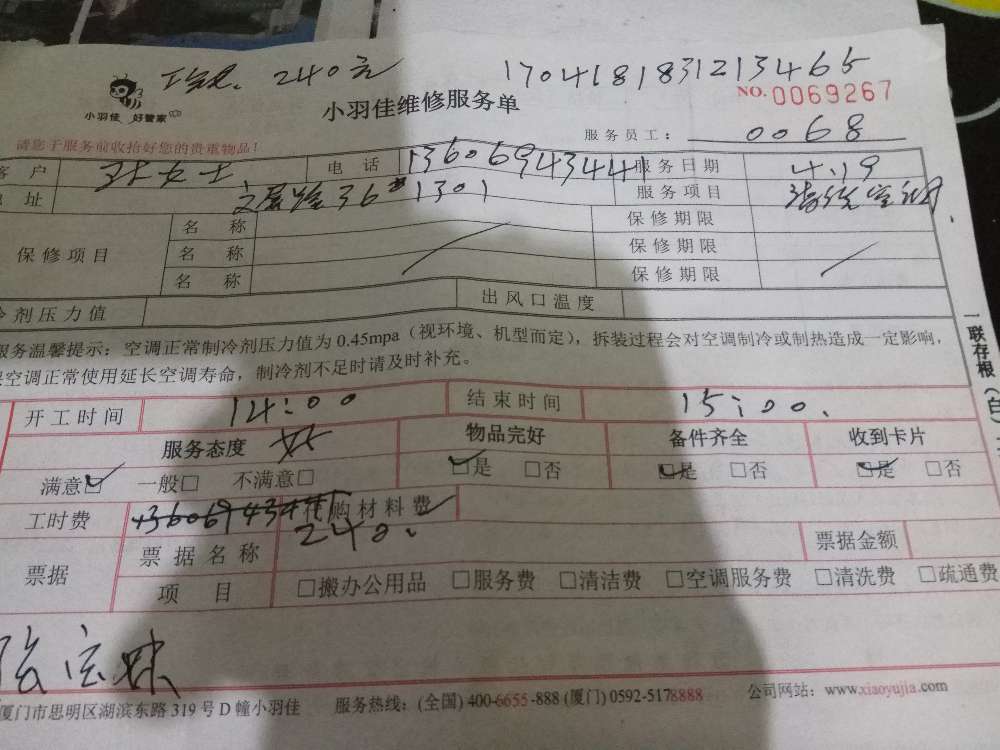 240元 1704181831213465
小羽佳 好管家
小羽佳维修服务单
NO.0069267
请您于服务前收拾好您的贵重物品!
服务员工: 0068
客户 女士 电话 13606943441 服务日期 4.19
地址 36 1301 服务项目 清洗空调
保修项目 名称 保修期限
名称 保修期限
名称 保修期限
冷剂压力值 出风口温度
服务温馨提示:空调正常制冷剂压力值为0.45mpa(视环境、机型而定),拆装过程会对空调制冷或制热造成一定影响,
空调正常使用延长空调寿命,制冷剂不足时请及时补充。
开工时间 14:00 结束时间 15:00.
服务态度 好 物品完好 备件齐全 收到卡片
满意□ 一般□ 不满意□ □是 □否 □是 □否 □是 □否
工时费 代购材料费
240.
票据 票据名称 票据金额
项目 □搬办公用品 □服务费 □清洁费 □空调服务费 □清洗费 □疏通费
一联存根(白)
厦门市思明区湖滨东路319号D幢小羽佳 服务热线:(全国)400-6655-888(厦门)0592-5178888 公司网站:www.xiaoyujia.com